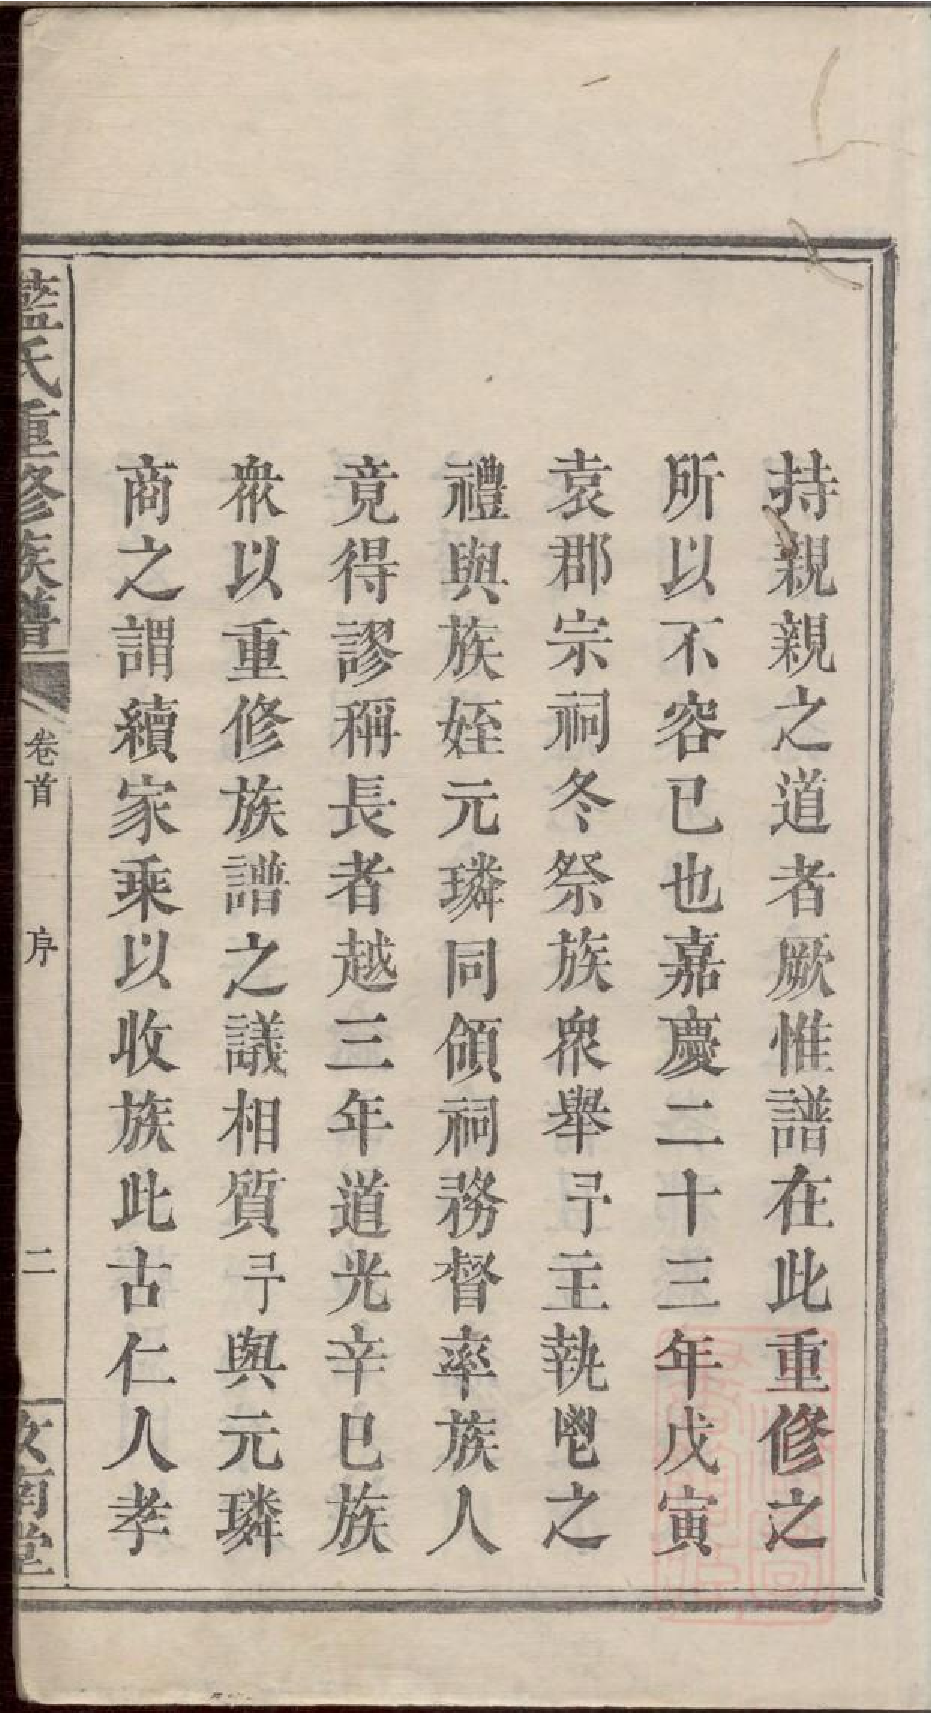 持親親之道者厥惟譜在此重修之
所以不容已也嘉慶二十三年戊寅
袁郡宗祠冬祭族衆舉予主執鬯之
禮與族姪元璘同領祠務督率族人
竟得謬稱長者越三年道光辛巳族
衆以重修族譜之議相質予與元璘
商之謂續家乘以收族此古仁人孝
藍氏重修族譜
卷首
序
二
汝南堂